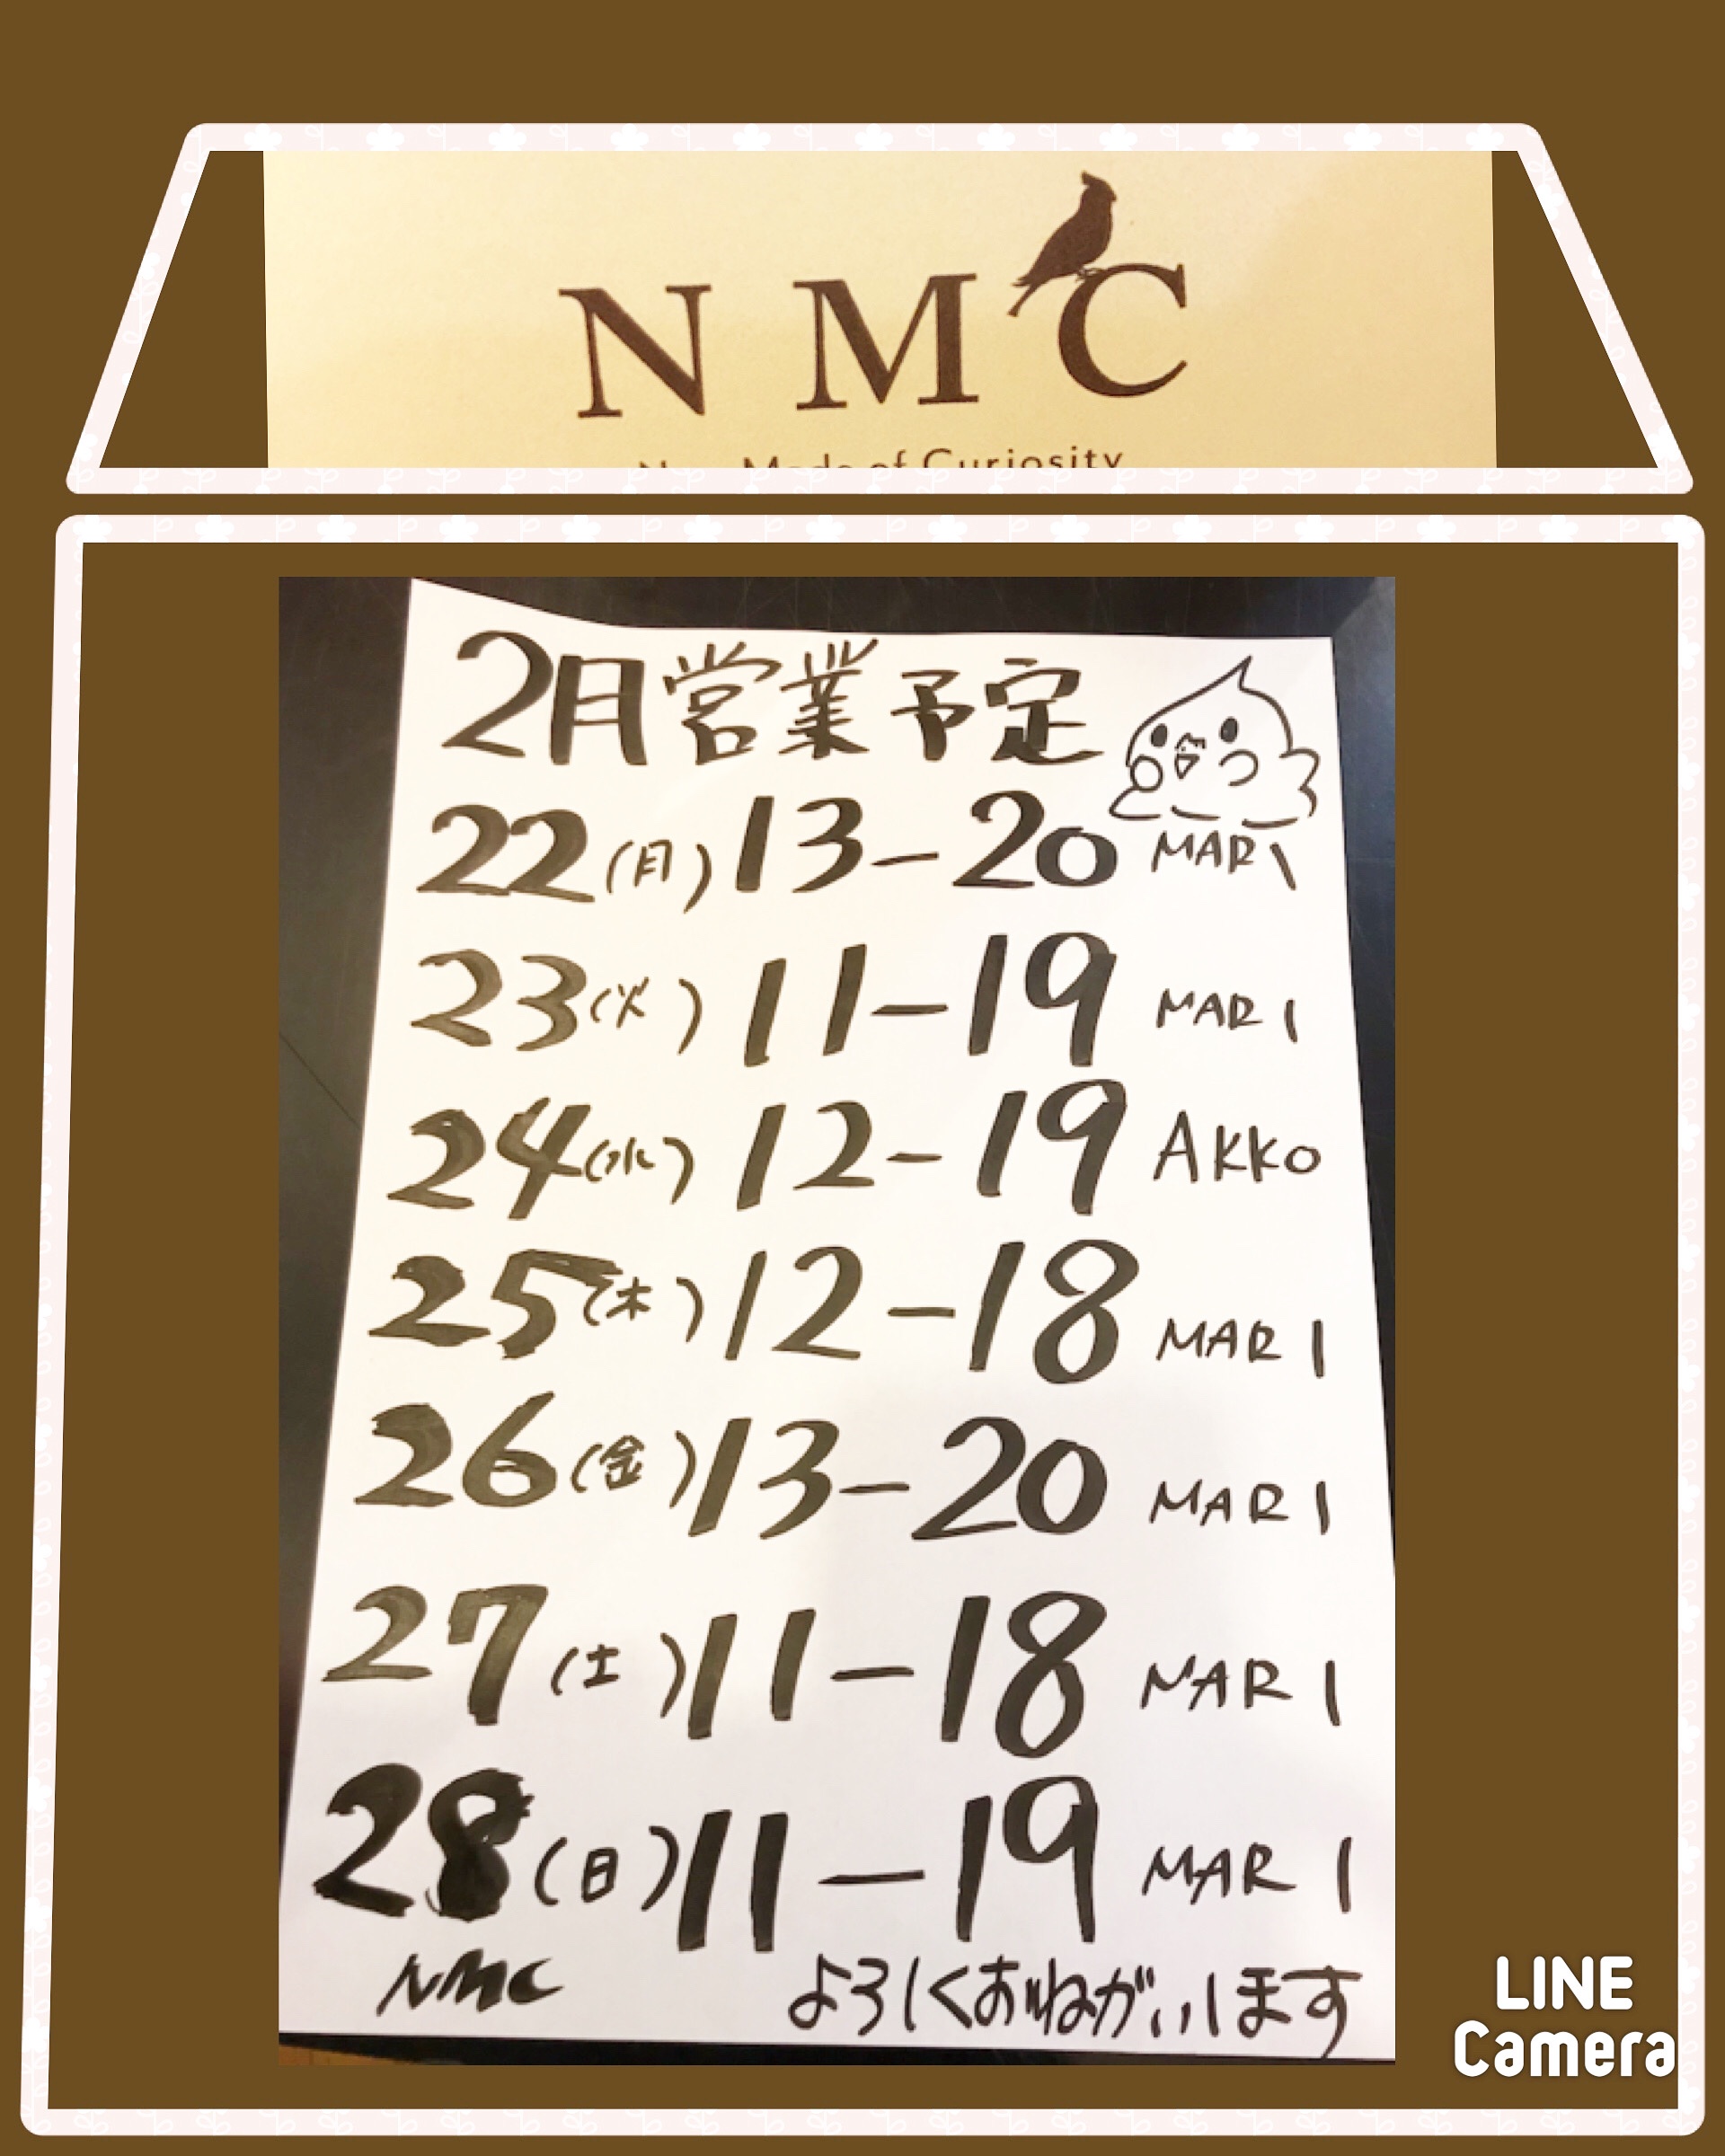 NMC
Made of Curiosity
2月営業予定
22(月)13-20 MARI
23(火)11-19 MARI
24(水)12-19 AKKO
25(木)12-18 MARI
26(金)13-20 MARI
27(土)11-18 MARI
28(日)11-19 MARI
NMC よろしくおねがいします
LINE
Camera